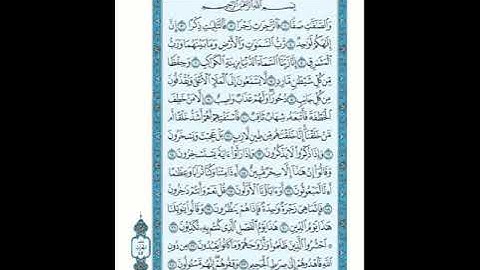 بِسْمِ ٱللَّهِ ٱلرَّحْمَٰنِ ٱلرَّحِيمِ
وَٱلصَّٰٓفَّٰتِ صَفًّا ١ فَٱلزَّٰجِرَٰتِ زَجْرًا ٢ فَٱلتَّٰلِيَٰتِ ذِكْرًا ٣ إِنَّ
إِلَٰهَكُمْ لَوَٰحِدٌ ٤ رَّبُّ ٱلسَّمَٰوَٰتِ وَٱلْأَرْضِ وَمَا بَيْنَهُمَا وَرَبُّ
ٱلْمَشَٰرِقِ ٥ إِنَّا زَيَّنَّا ٱلسَّمَآءَ ٱلدُّنْيَا بِزِينَةٍ ٱلْكَوَاكِبِ ٦ وَحِفْظًا
مِّن كُلِّ شَيْطَٰنٍ مَّارِدٍ ٧ لَّا يَسَّمَّعُونَ إِلَى ٱلْمَلَإِ ٱلْأَعْلَىٰ وَيُقْذَفُونَ
مِن كُلِّ جَانِبٍ ٨ دُحُورًا وَلَهُمْ عَذَابٌ وَاصِبٌ ٩ إِلَّا مَنْ خَطِفَ
ٱلْخَطْفَةَ فَأَتْبَعَهُۥ شِهَابٌ ثَاقِبٌ ١٠ فَٱسْتَفْتِهِمْ أَهُمْ أَشَدُّ خَلْقًا أَم
مَّنْ خَلَقْنَآ إِنَّا خَلَقْنَٰهُم مِّن طِينٍ لَّازِبٍۭ ١١ بَلْ عَجِبْتَ وَيَسْخَرُونَ
١٢ وَإِذَا ذُكِّرُوا۟ لَا يَذْكُرُونَ ١٣ وَإِذَا رَأَوْا۟ ءَايَةً يَسْتَسْخِرُونَ
١٤ وَقَالُوٓا۟ إِنْ هَٰذَآ إِلَّا سِحْرٌ مُّبِينٌ ١٥ أَءِذَا مِتْنَا وَكُنَّا تُرَابًا وَعِظَٰمًا
أَءِنَّا لَمَبْعُوثُونَ ١٦ أَوَءَابَآؤُنَا ٱلْأَوَّلُونَ ١٧ قُلْ نَعَمْ وَأَنتُمْ دَٰخِرُونَ
١٨ فَإِنَّمَا هِىَ زَجْرَةٌ وَٰحِدَةٌ فَإِذَا هُمْ يَنظُرُونَ ١٩ وَقَالُوا۟ يَٰوَيْلَنَا
هَٰذَا يَوْمُ ٱلدِّينِ ٢٠ هَٰذَا يَوْمُ ٱلْفَصْلِ ٱلَّذِى كُنتُم بِهِۦ تُكَذِّبُونَ
٢١ ٱحْشُرُوا۟ ٱلَّذِينَ ظَلَمُوا۟ وَأَزْوَٰجَهُمْ وَمَا كَانُوا۟ يَعْبُدُونَ ٢٢ مِن دُونِ
ٱللَّهِ فَٱهْدُوهُمْ إِلَىٰ صِرَٰطِ ٱلْجَحِيمِ ٢٣ وَقِفُوهُمْ إِنَّهُم مَّسْـُٔولُونَ ٢٤